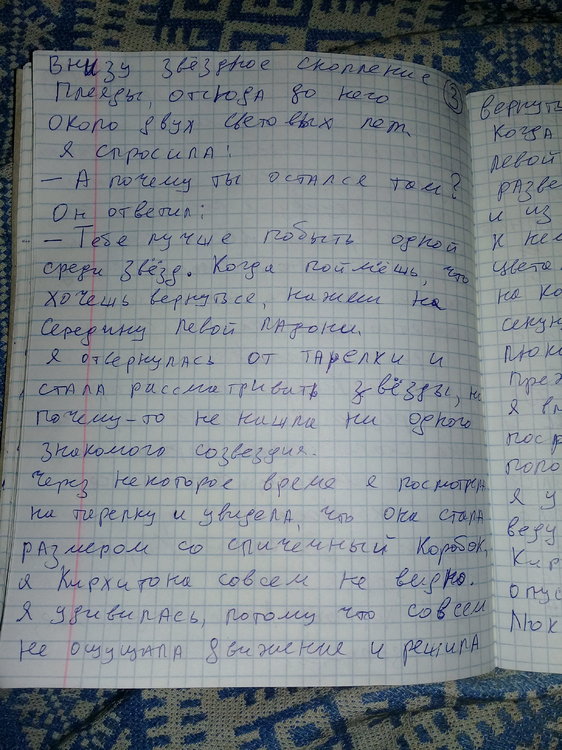 Внизу звёздное скопление
Плеяды, отсюда до него
около двух световых лет.
Я спросила:
— А почему ты остался там?
Он ответил:
— Тебе лучше побыть одной
среди звёзд. Когда поймёшь, что
хочешь вернуться, нажми на
середину левой ладони.
Я отвернулась от тарелки и
стала рассматривать звёзды, но
почему-то не нашла ни одного
знакомого созвездия.
Через некоторое время я посмотрела
на тарелку и увидела, что она стала
размером со спиченный коробок,
я Кирхитона совсем не видно.
Я удивилась, потому что совсем
не ощущала движение и решила
3
вернуть
когда
левой
разве
и из
к не
цвета
на ко
секун
люк
Преж
Я в
поср
поло
Я у
веду
Кир
опус
Люк